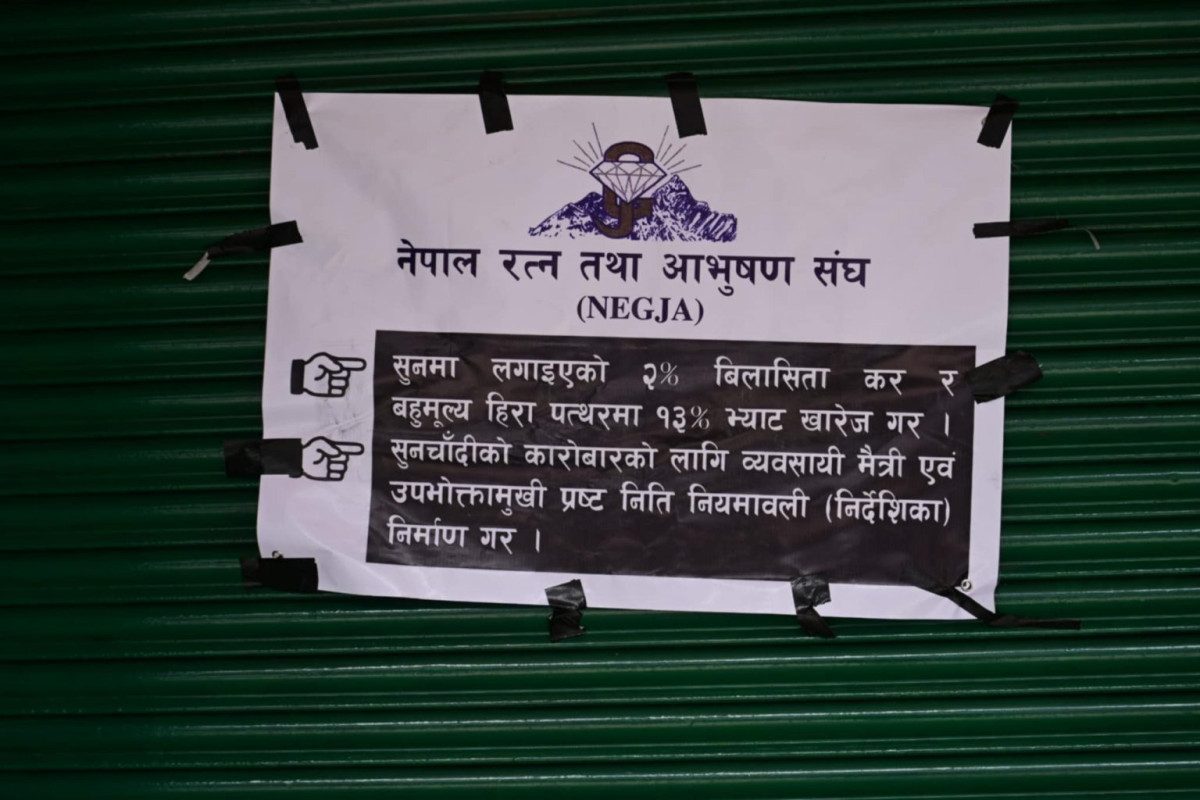 नेपाल रत्न तथा आभुषण संघ
(NEGJA)
सुनमा लगाइएको २% बिलासिता कर र
बहुमूल्य हिरा पत्थरमा १३% भ्याट खारेज गर ।
सुनचाँदीको कारोबारको लागि व्यवसायी मैत्री एवं
उपभोक्तामुखी प्रष्ट निति नियमावली (निर्देशिका)
निर्माण गर ।